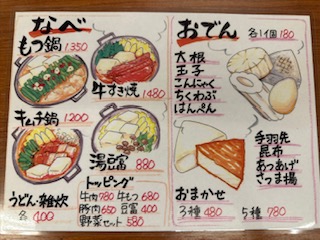 なべ
もつ鍋 1350
牛すき焼 1480
キムチ鍋 1200
湯豆富 880
うどん・雑炊
各 400
トッピング
牛肉 780 牛もつ 680
豚肉 650 豆富 400
野菜セット 580
おでん 各1個 180
大根
玉子
こんにゃく
ちくわぶ
はんぺん
手羽先
昆布
あつあげ
さつま揚
おまかせ
3種 480 5種 780